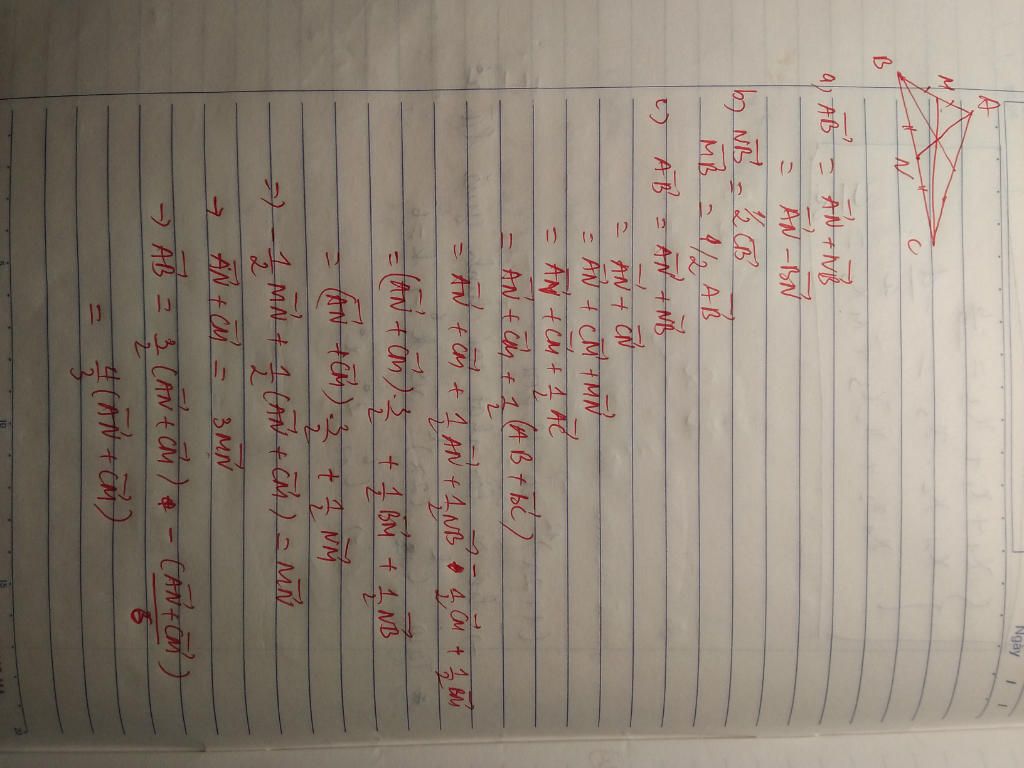 Ngày
A
M
B
N
C
a) AB⃗ = AN⃗ + NB⃗
= AN⃗ - BN⃗
b) NB⃗ = 1/2 CB⃗
MB⃗ = 1/2 AB⃗
c) AB⃗ = AN⃗ + NB⃗
= AN⃗ + CN⃗
= AN⃗ + CM⃗ + MN⃗
= AN⃗ + CM⃗ + 1/2 AC⃗
= AN⃗ + CM⃗ + 1/2 (AB⃗ + BC⃗)
= AN⃗ + CM⃗ + 1/2 AN⃗ + 1/2 NB⃗ - 1/2 CM⃗ + 1/2 BM⃗
= (AN⃗ + CM⃗) 3/2 + 1/2 BM⃗ + 1/2 NB⃗
= (AN⃗ + CM⃗) 3/2 + 1/2 NM⃗
=> - 1/2 MN⃗ + 1/2 (AN⃗ + CM⃗) = MN⃗
→ AN⃗ + CM⃗ = 3MN⃗
→ AB⃗ = 3/2 (AN⃗ + CM⃗) - (AN⃗ + CM⃗)/6
= 4/3 (AN⃗ + CM⃗)